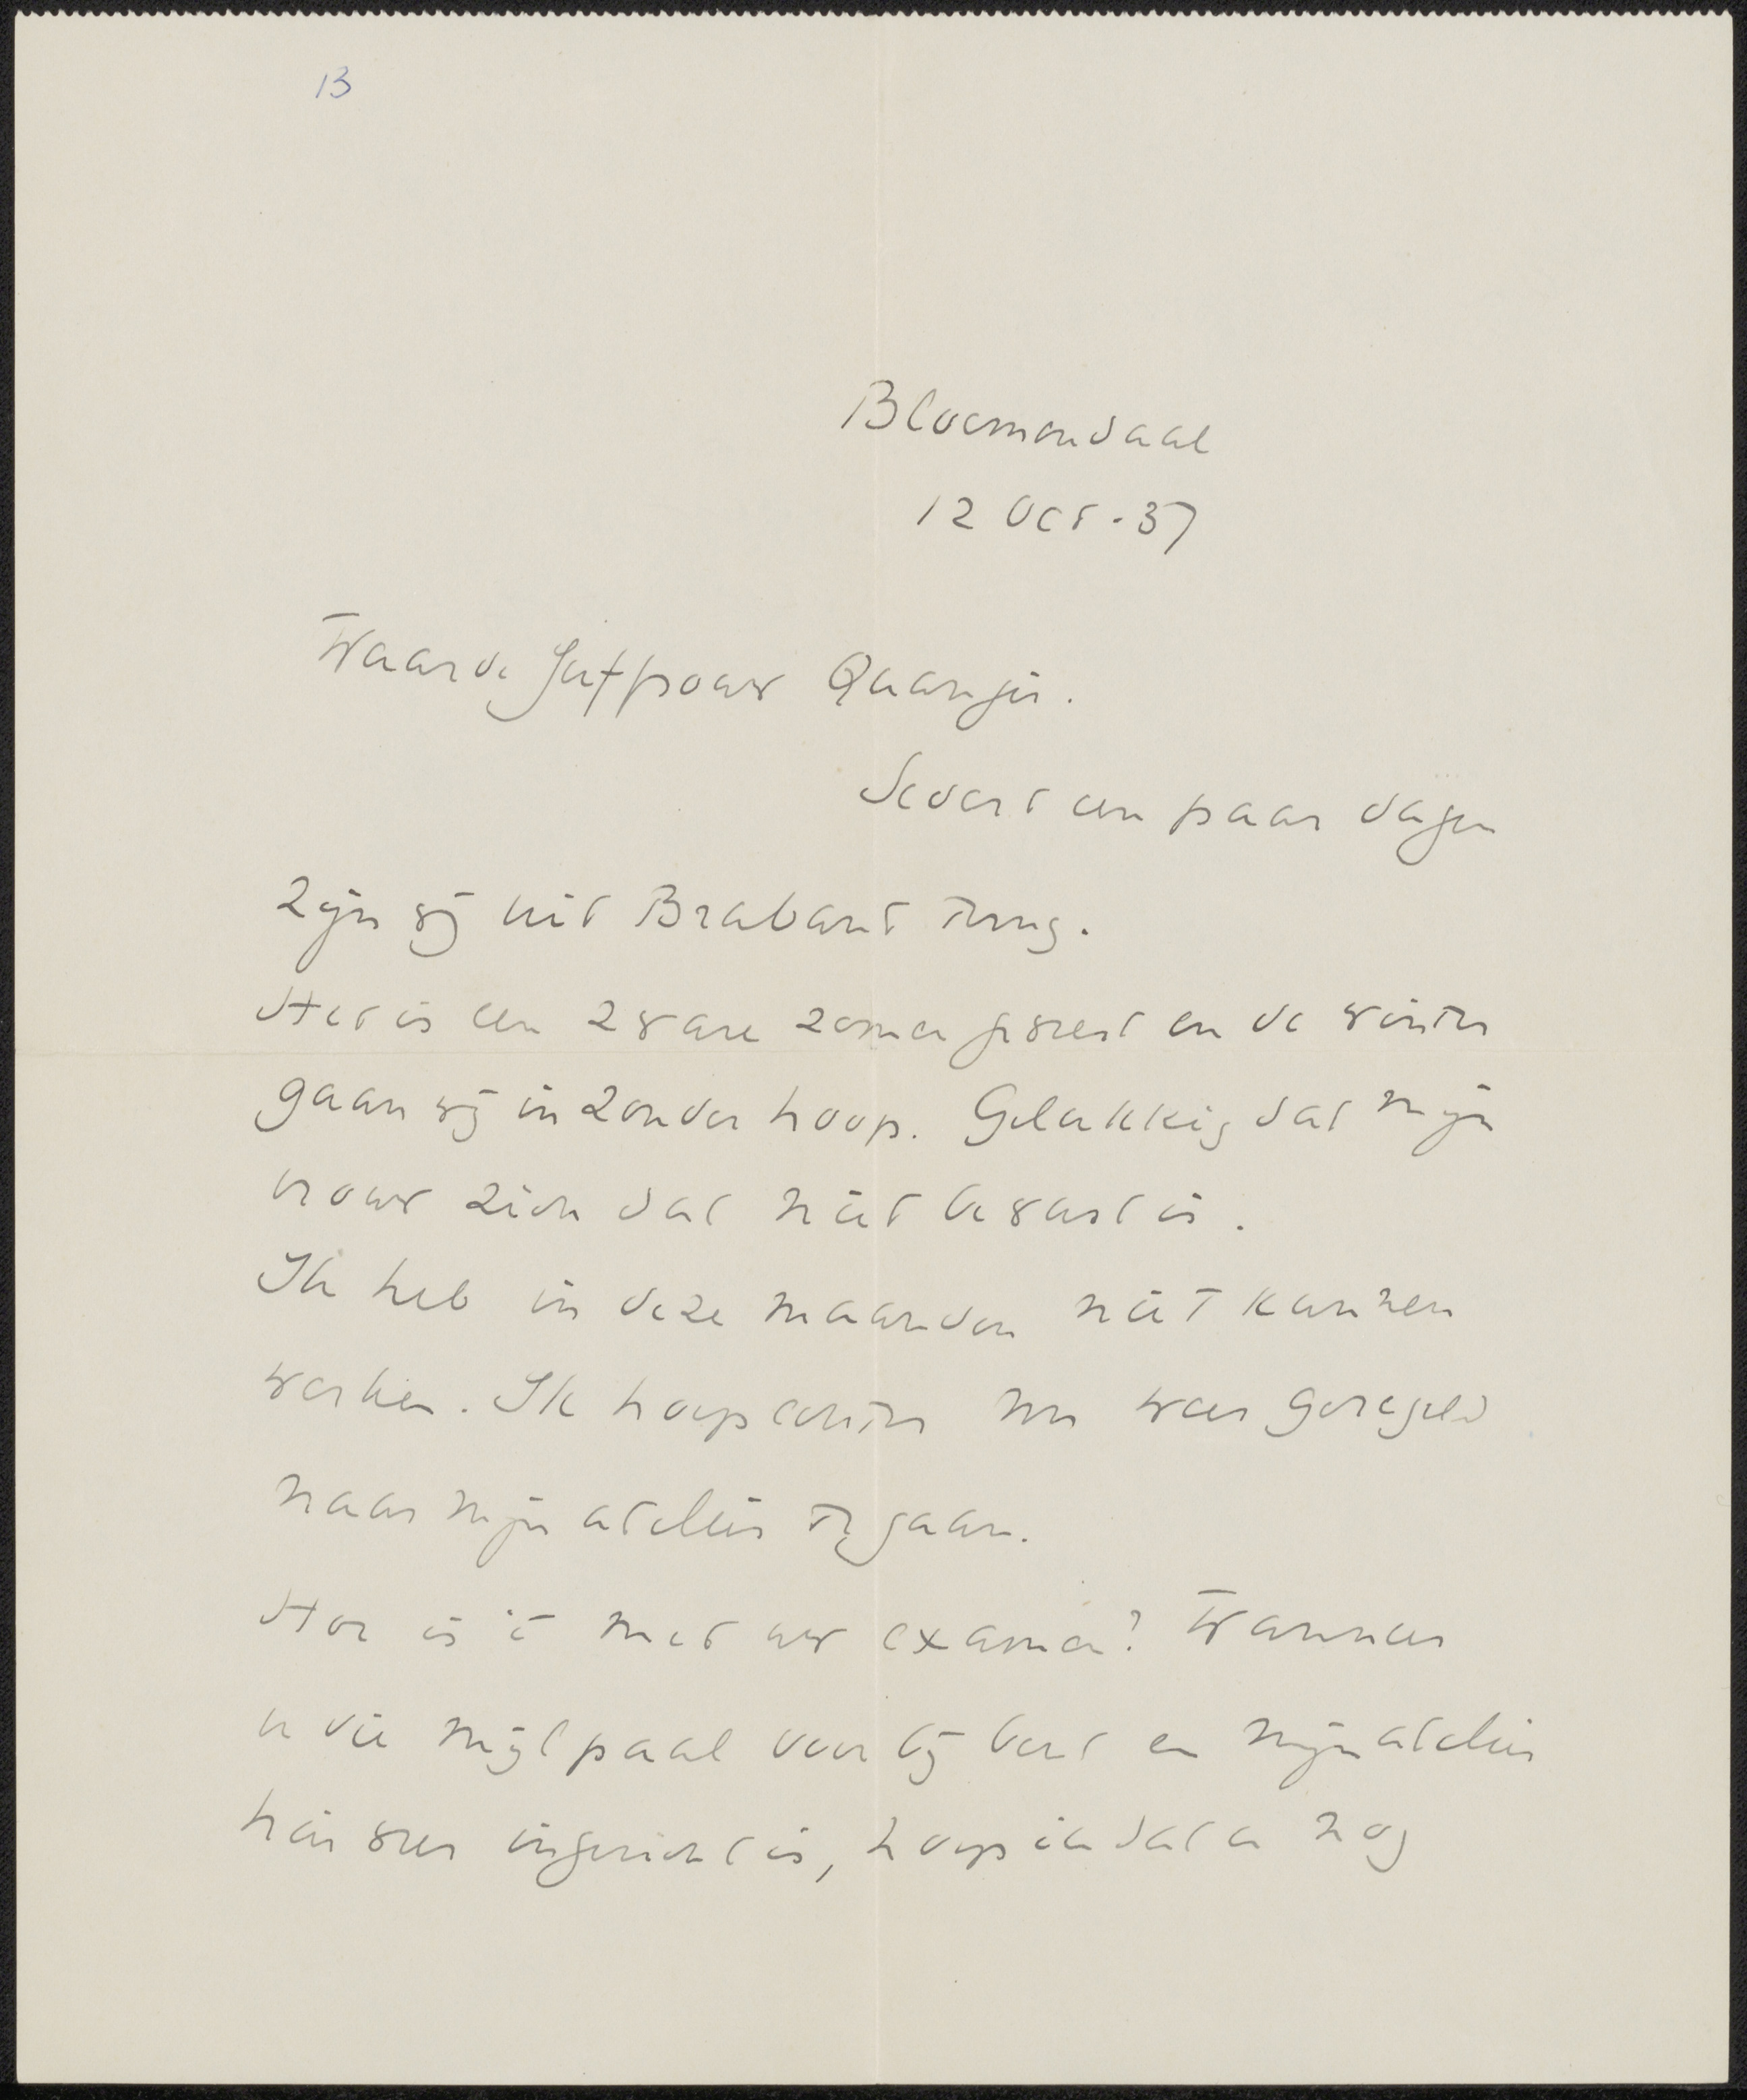 13
Bloemendaal
12 Oct. 37
Waarde Juffrouw Quanjer.
Sedert een paar dagen
zijn wij uit Brabant terug.
Het is een zware zomer geweest en de winter
gaan wij in zonder hoop. Gelukkig dat mijn
vrouw zich dat niet bewust is.
Ik heb in deze maanden niet kunnen
werken. Ik hoop echter nu weer geregeld
naar mijn atelier te gaan.
Hoe is 't met uw examen? Wanneer
u die mijlpaal voorbij bent en mijn atelier
hier weer ingericht is, hoop ik dat u nog